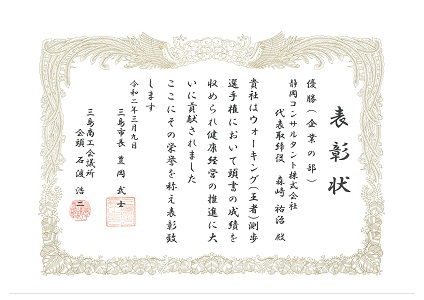 表彰状
優勝(企業の部)
静岡コンサルタント株式会社
代表取締役 森崎祐治殿
貴社はウォーキング(王者)測歩
選手権において頭書の成績を
収められ健康経営の推進に大
いに貢献されました
ここにその栄誉を称え表彰致
します
令和二年三月九日
三島市長 豊岡武士
三島商工会議所
会頭 石渡浩二